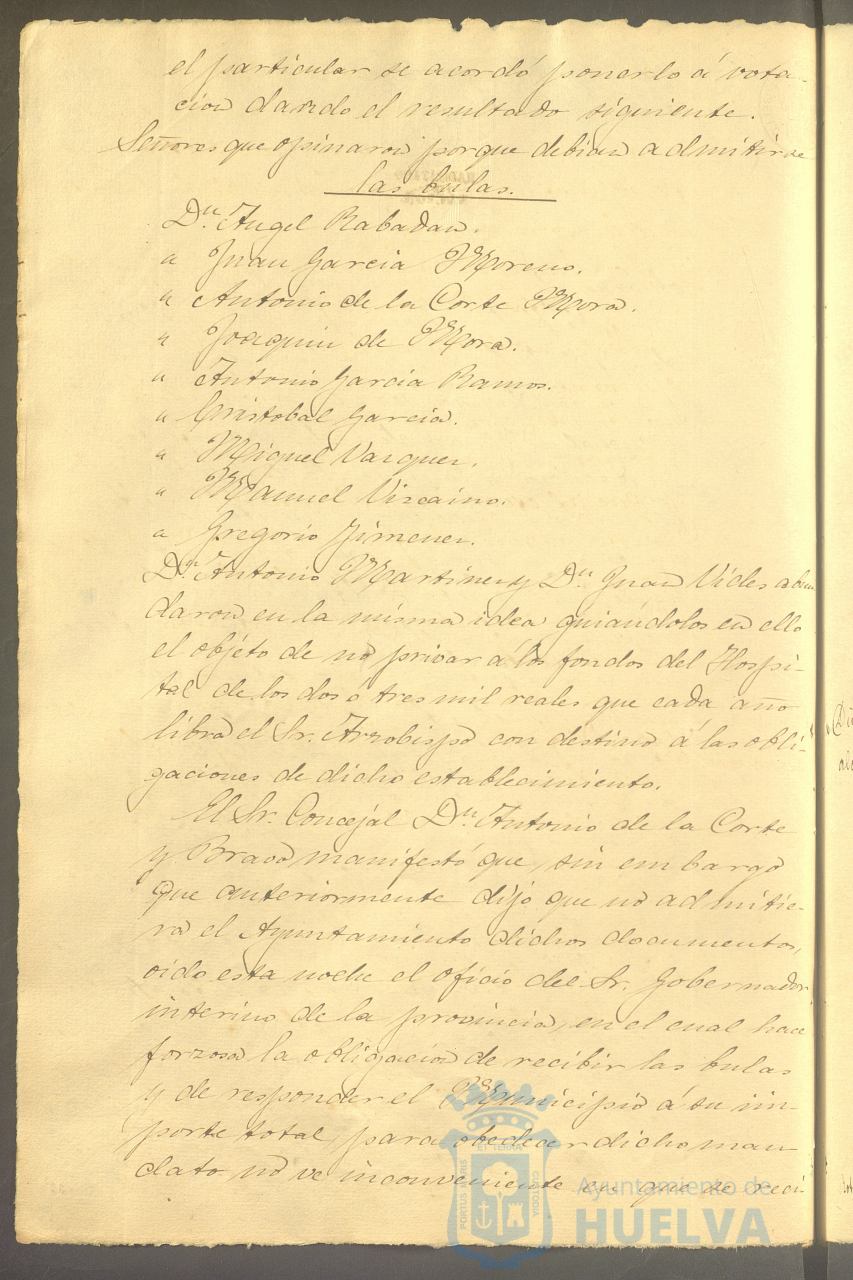 el particular se acordó ponerlo á vota-
cion dando el resultado siguiente.
Señores que opinaron porque debian admitirse
las bulas.
Dn. Angel Rabadan.
" Juan Garcia Moreno.
" Antonio de la Corte Mora.
" Joaquin de Mora.
" Antonio Garcia Ramos.
" Cristobal Garcia.
" Miguel Vazquez.
" Manuel Vizcaino.
" Gregorio Jimenez.
Dn. Antonio Martinez y Dn. Juan Vides abun
daron en la misma idea guiándolos en ello
el objéto de no privar á los fondos del Hospi-
tal de los dos ó tres mil reales que cada año
libra el Sr. Arzobispo con destino á las obli-
gaciones de dicho establecimiento.
El Sr. Concejál Dn. Antonio de la Corte
y Bravo manifestó que, sin embargo
que anteriormente dijo que no admitie-
ra el Ayuntamiento dichos documentos,
oido esta noche el oficio del Sr. Gobernador
interino de la provincia, en el cual hace
forzosa la obligacion de recibir las bulas
y de responder el Municipio á su im-
porte total, para obedecer dicho man
dato no ve inconveniente en que se reci-
PORTUS MARIS
ET TERRA
CUSTODIA
Ayuntamiento de
HUELVA